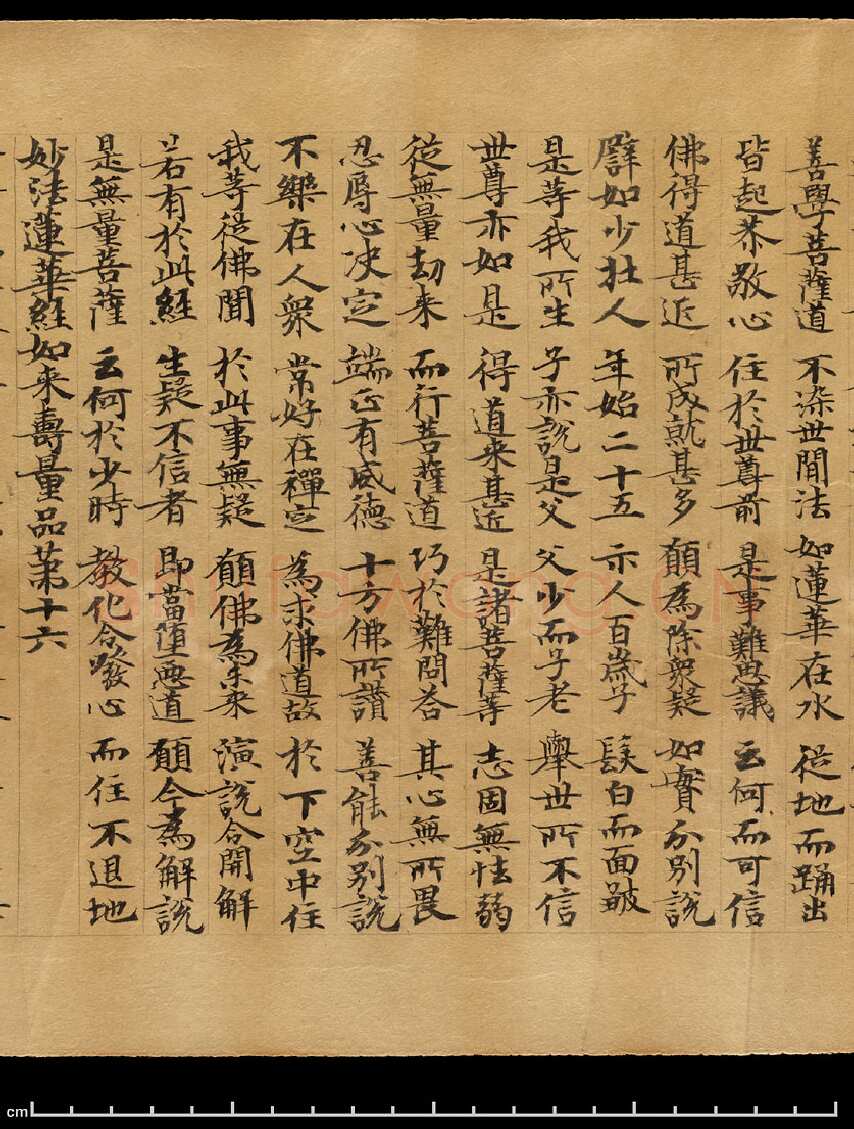 善學菩薩道 不染世間法 如蓮華在水 從地而踊出
皆起恭敬心 住於世尊前 是事難思議 云何而可信
佛得道甚近 所成就甚多 願為除衆疑 如實分別說
譬如少壯人 年始二十五 示人百歲子 髮白而面皺
是等我所生 子亦說是父 父少而子老 舉世所不信
世尊亦如是 得道来甚近 是諸菩薩等 志固無怯弱
從無量劫来 而行菩薩道 巧於難問荅 其心無所畏
忍辱心决定 端正有威德 十方佛所讃 善能分別說
不樂在人衆 常好在禪定 為求佛道故 於下空中住
我等從佛聞 於此事無疑 願佛為未来 演說令開解
若有於此經 生疑不信者 即當墮惡道 願今為解說
是無量菩薩 云何於少時 教化令發心 而住不退地
妙法蓮華經如来壽量品苐十六